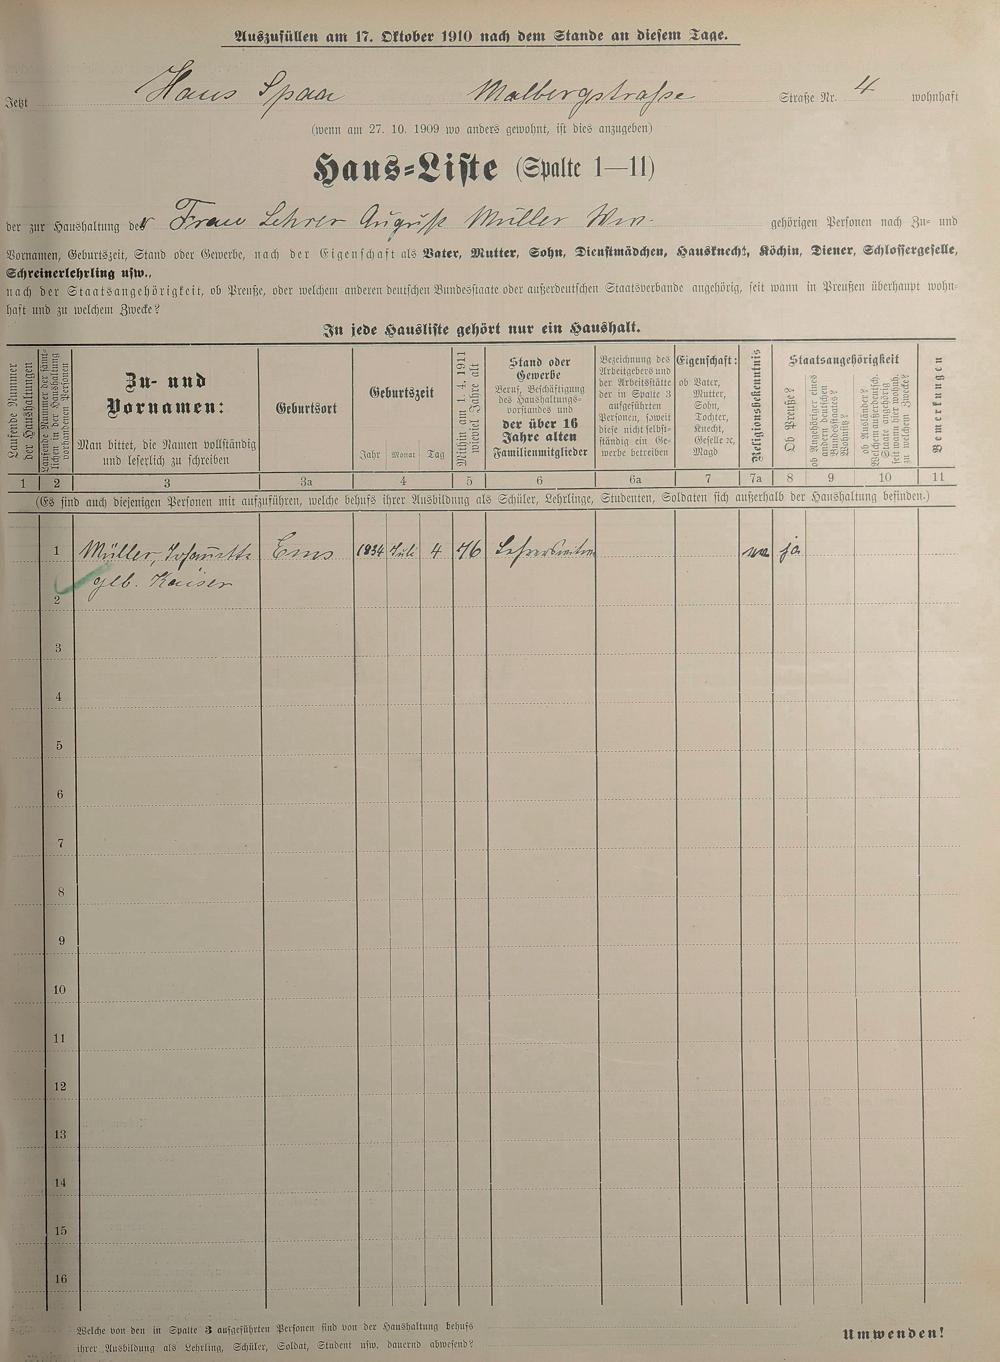 Auszufüllen am 17. Oktober 1910 nach dem Stande an diesem Tage.
Jetzt Haus Spaa Malbergstraße Straße Nr. 4 wohnhaft
(wenn am 27. 10. 1909 wo anders gewohnt, ist dies anzugeben)
Haus=Liste (Spalte 1—11)
der zur Haushaltung der Frau Lehrer August Müller Ww. gehörigen Personen nach Zu= und
Vornamen, Geburtszeit, Stand oder Gewerbe, nach der Eigenschaft als Vater, Mutter, Sohn, Dienstmädchen, Hausknecht, Köchin, Diener, Schlossergeselle,
Schreinerlehrling usw.,
nach der Staatsangehörigkeit, ob Preuße, oder welchem anderen deutschen Bundesstaate oder außerdeutschen Staatsverbande angehörig, seit wann in Preußen überhaupt wohn=
haft und zu welchem Zwecke?
In jede Hausliste gehört nur ein Haushalt.
Laufende Nummer
der Haushaltungen
Laufende Nummer der sämt=
lichen in der Haushaltung
vorhandenen Personen
Zu= und
Vornamen:
Man bittet, die Namen vollständig
und leserlich zu schreiben
Geburtsort
Geburtszeit
Jahr Monat Tag
Mithin am 1. 4. 1911
wieviel Jahre alt
Stand oder
Gewerbe
Beruf, Beschäftigung
des Haushaltungs=
vorstandes und
der über 16
Jahre alten
Familienmitglieder
Bezeichnung des
Arbeitgebers und
der Arbeitsstätte
der in Spalte 3
aufgeführten
Personen, soweit
diese nicht selbst=
ständig ein Ge=
werbe betreiben
Eigenschaft:
ob Vater,
Mutter,
Sohn,
Tochter,
Knecht,
Geselle ec,
Magd
Religionsbekenntnis
Staatsangehörigkeit
Ob Preuße?
ob Angehöriger eines
andern deutschen
Bundesstaates?
Wohnsitz?
ob Ausländer?
Welchem außerdeutsch.
Staate angehörig
seit wann hier wohnh.
zu welchem Zwecke?
Bemerkungen
1 2 3 3a 4 5 6 6a 7 7a 8 9 10 11
(Es sind auch diejenigen Personen mit aufzuführen, welche behufs ihrer Ausbildung als Schüler, Lehrlinge, Studenten, Soldaten sich außerhalb der Haushaltung befinden.)
1 Müller, Johanette Ems 1834 Juli 4 76 Lehrerswitwe ja
geb. Kaiser
2
3
4
5
6
7
8
9
10
11
12
13
14
15
16
Welche von den in Spalte 3 aufgeführten Personen sind von der Haushaltung behufs
ihrer Ausbildung als Lehrling, Schüler, Soldat, Student usw. dauernd abwesend?
Umwenden!